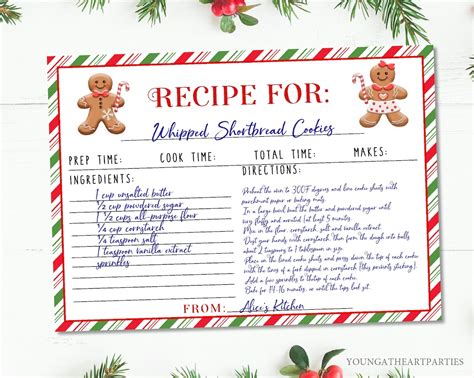 RECIPE FOR:
Whipped Shortbread Cookies
PREP TIME: COOK TIME: TOTAL TIME: MAKES:
INGREDIENTS:
1 cup unsalted butter
1/2 cup powdered sugar
1 1/2 cups all-purpose flour
1/4 cup cornstarch
1/4 teaspoon salt
1 teaspoon vanilla extract
sprinkles
DIRECTIONS:
Preheat the oven to 300F degrees and line cookie sheets with
parchment paper or baking mats.
In a large bowl beat the butter and powdered sugar until
fluffy and aerated (at least 5 minutes).
Mix in the flour, cornstarch, salt and vanilla extract.
Dust your hands with cornstarch, then form the dough into balls
about 2 teaspoons to 1 tablespoon in size.
Place in the lined cookie sheets and press down the top of each cookie
with the tines of a fork dipped in cornstarch (this prevents sticking).
Add a few sprinkles to the tops of each cookie.
Bake for 14-16 minutes, or until the tops look set.
FROM: Alice's Kitchen
YOUNGATHEARTPARTIES